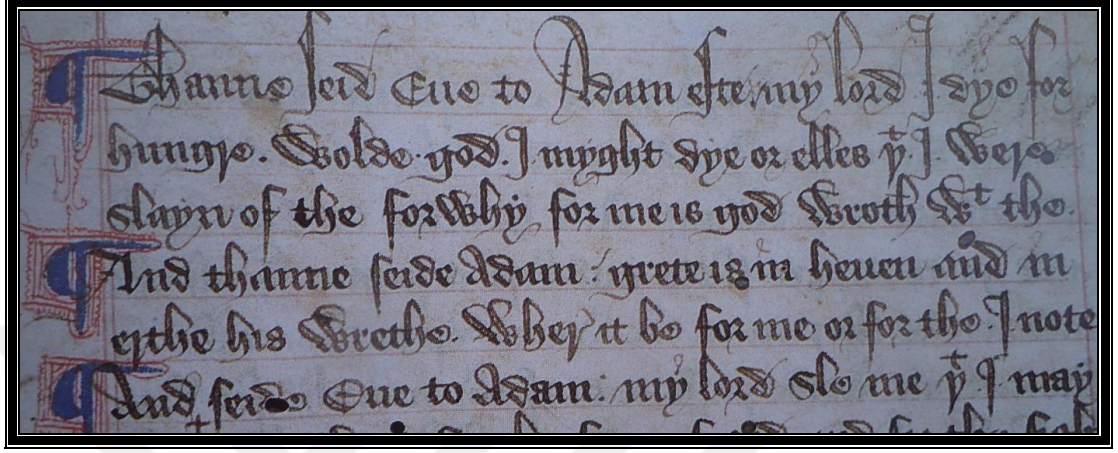 ¶ Thanne seid Eue to Adam efte, my lord I dye for
hungre. Wolde god. I myght dye or elles yͭ. I. were
slayn of the for why, for me is god wroth wͭ the.
¶ And thanne seide Adam: grete is in heuen and in
erthe his wrethe. Wher it be for me or for the. I note
¶ And seide Eue to Adam: my lord sle me yͭ I may